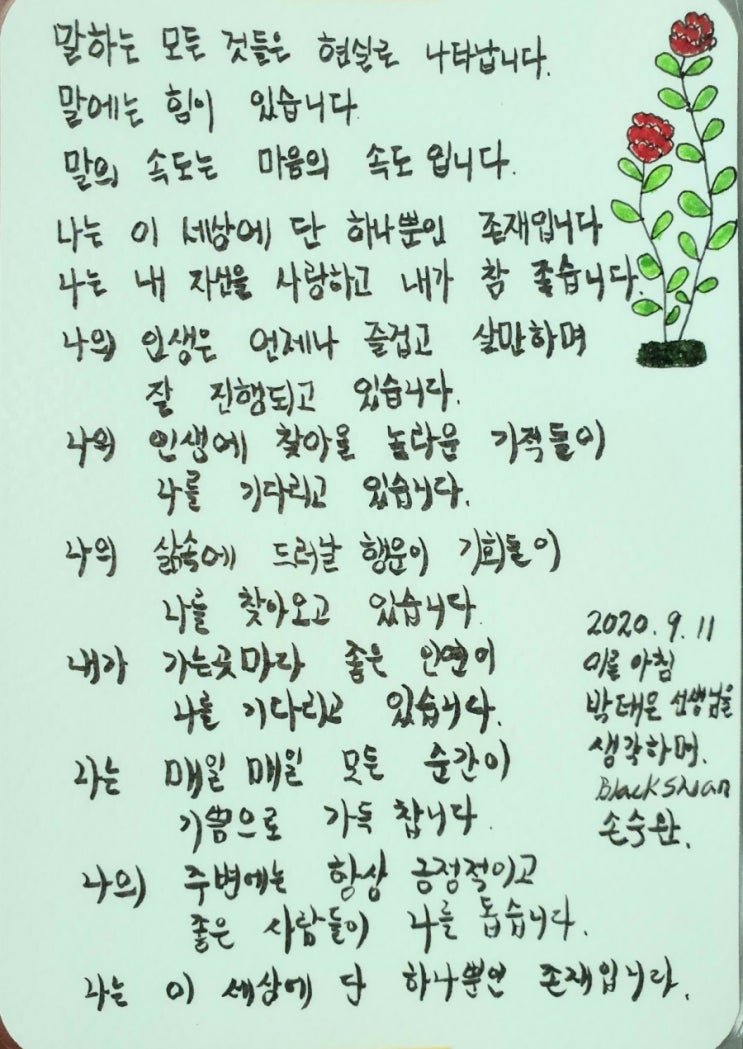 말하는 모든 것들은 현실로 나타납니다.
말에는 힘이 있습니다.
말의 속도는 마음의 속도 입니다.
나는 이 세상에 단 하나뿐인 존재입니다
나는 내 자신을 사랑하고 내가 참 좋습니다.
나의 인생은 언제나 즐겁고 살만하며
잘 진행되고 있습니다.
나의 인생에 찾아올 놀라운 기적들이
나를 기다리고 있습니다.
나의 삶속에 드러날 행운이 기회들이
나를 찾아오고 있습니다.
내가 가는곳마다 좋은 인연이
나를 기다리고 있습니다.
나는 매일 매일 모든 순간이
기쁨으로 가득 찹니다.
나의 주변에는 항상 긍정적이고
좋은 사람들이 나를 돕습니다.
나는 이 세상에 단 하나뿐인 존재입니다.
2020.9.11
이를 아침
박태은 선생님을
생각하며.
손숙완.